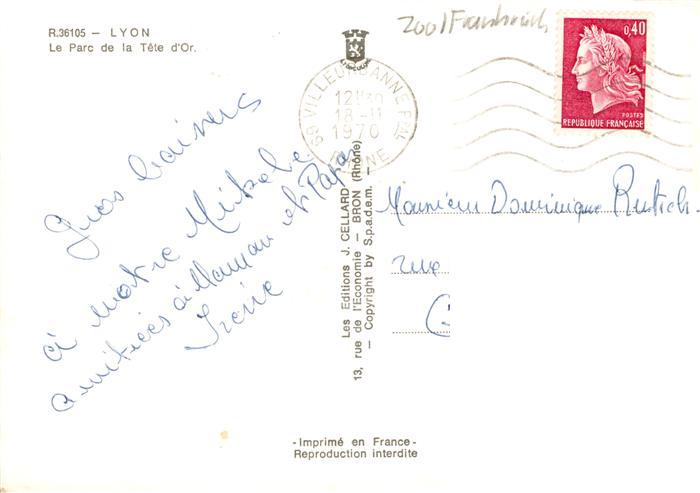 R.36105 – LYON
Le Parc de la Tête d'Or.
2001 Frankreich
0,40
POSTES
REPUBLIQUE FRANÇAISE
69 VILLEURBANNE PPAL
12H30
18-11
1970
RHONE
Gros baisers
à notre
amitiés à Maman et Papa
Irène
Les Editions J. CELLARD
13, rue de l'Economie – BRON (Rhône)
– Copyright by S.p.a.d.e.m. –
Monsieur Dominique
rue
- Imprimé en France -
Reproduction interdite